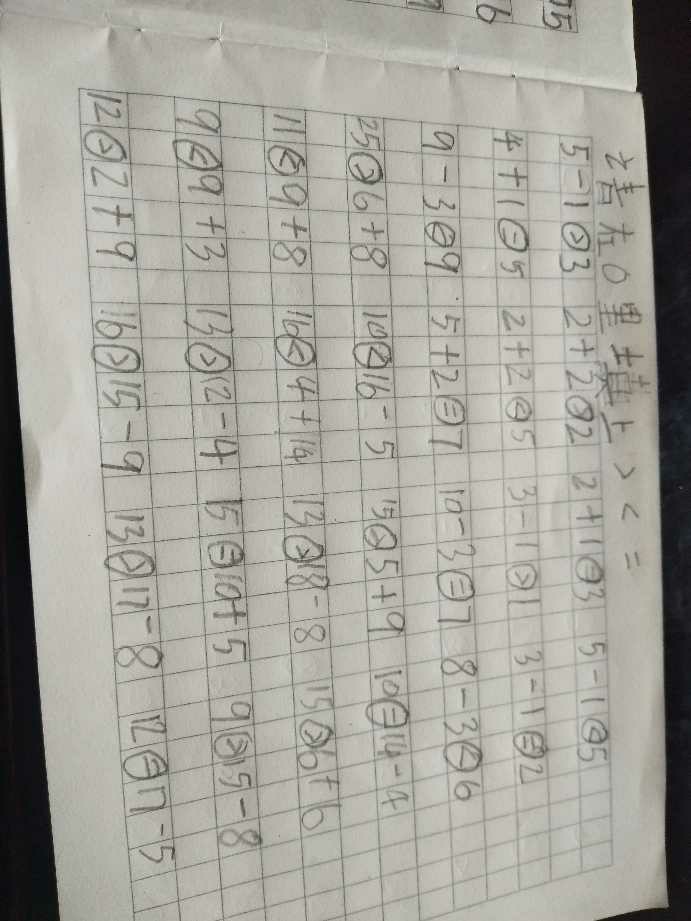 请在○里填上 > < =
5-1>3 2+2>2 2+1=3 5-1<5
4+1=5 2+2<5 3-1>1 3-1=2
9-3<9 5+2=7 10-3=7 8-3<6
25>6+8 10<16-5 15>5+9 10=14-4
11<9+8 16<4+14 13>18-8 15>6+6
9<9+3 13>12-4 15=10+5 9>15-8
12>2+9 16>15-9 13>17-8 12=17-5